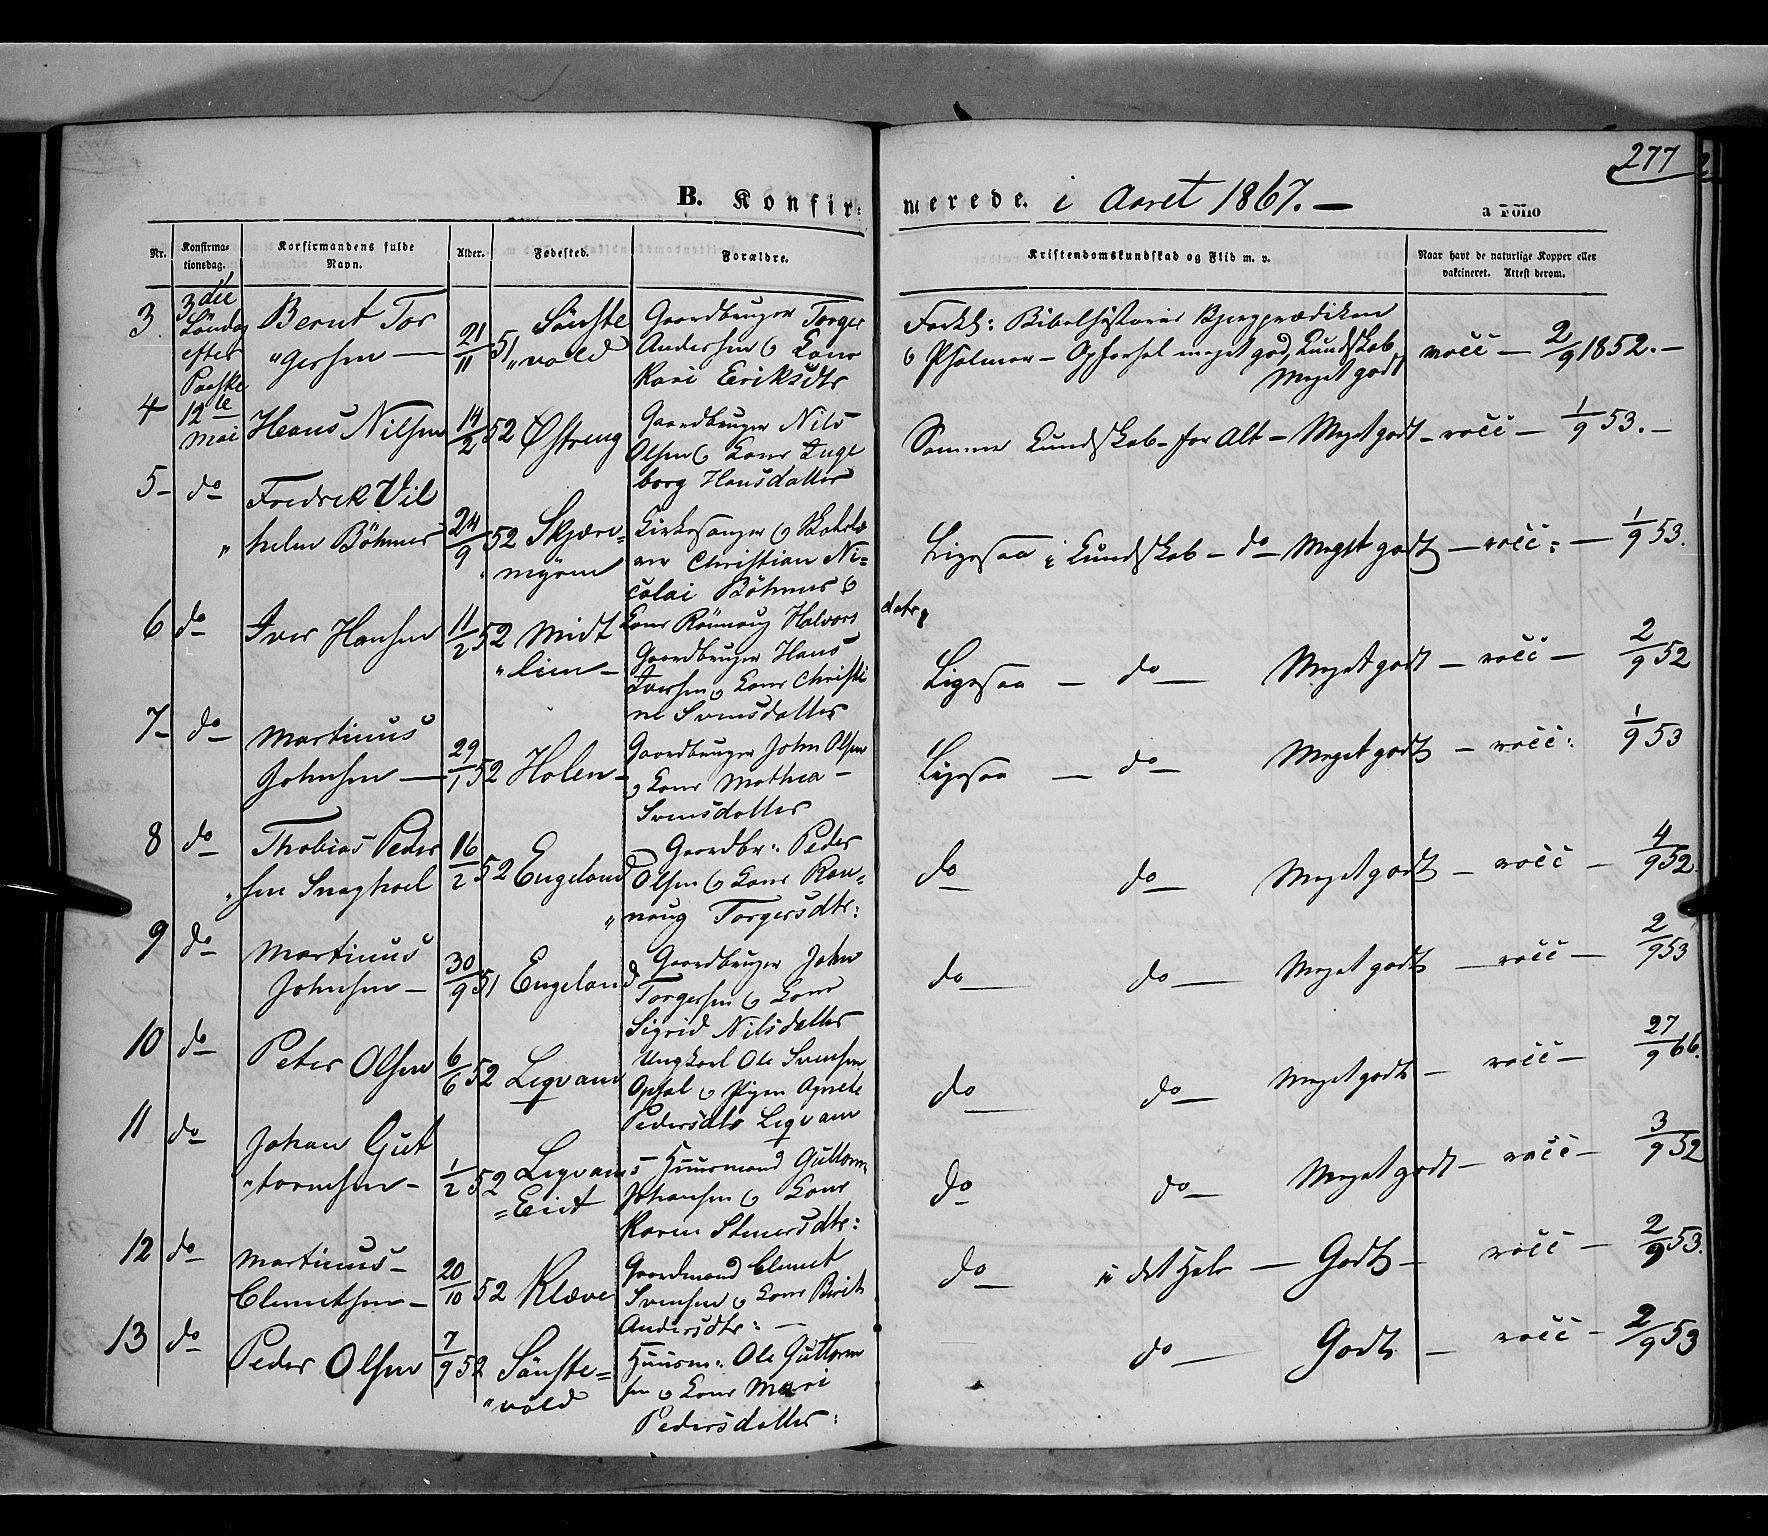 277
B. Konfir-
merede. i Aaret 1867. —
a Folio
Nr.
Konfirma-
tionsdag.
Korfirmandens fulde
Navn.
Alder.
Fødested.
Forældre.
Kristendomskundskab og Flid m. v.
Naar havt de naturlige Kopper eller
vakcineret. Attest derom.
3
3die
Søndag
efter
Paaske
Bernt Tor
"gersen —
21/11 51
Sønste
"vold
Gaardbruger Torger
Andersen o Kone
Kari Eriksdtr
Forkl: Bibelhistorie Bjergprædiken
o Psalmer — Opførsel meget god, Kundskab
Meget godt
vacc — 2/9 1852. —
4
12te
Mai
Hans Nilsen
14/2 52
Østreng
Gaardbruger Nils
Olsen o Kone Inge
borg Hansdatter
Samme Kundskab — for Alt — Meget godt — vacc — 1/9 53. —
5 —
do
Fredrek Vil
"helm Böhmer
24/9 52
Skjære=
"myren
Kirkesanger o Skolelæ
rer Christian Ni=
colai Böhmer o
Kone Rönnoug Halvors
datr
Ligesaa i Kundskab — do — Meget godt — vacc: — 1/9 53.
6
do
Iver Hansen
11/2 52
Midt
"lien —
Gaardbruger Hans
Iversen o Kone Christi
ne Svensdatter
Ligesaa — do — Meget godt — vacc — 2/9 52
7 —
do
Martinus
Johnsen —
29/1 52
Holen —
Gaardbruger John Olsen
o Kone Mathea —
Svensdatter
Ligesaa — do — Meget godt — vacc: 1/9 53
8
do
Thobias Peder
"sen
16/2 52
Engeland
Gaardbr: Peder
Olsen o Kone Ran=
"noug Torgersdtr:
do do Meget godt — vacc — 4/9 52
9
do
Martinus
Johnsen —
30/9 51
Engeland
Gaardbruger John
Torgersen o Kone
Sigrid Nilsdatter
do — do — Meget godt — vacc — 2/9 53
10
do
Peter Olsen
6/6 52
Leqvam
Ungkarl Ole Svensen
Opsal o Pigen Agnete
Pedersdtr Leqvam
do — do — Meget godt — vacc — 27/9 66.
11
do
Johan Gut
"tormsen —
1/2 52
Leqvams
=Eiet
Huusmand Guttorm
Johansen o Kone
Karen Steners dtr:
do do — Meget godt — vacc — 3/9 52
12
do
Martinus —
Clemetsen —
20/10 52
Klæve
Gaardmand Clemet
Svensen o Kone Birit
Andersdtr: —
do i det Hele — Godt — vacc — 2/9 53.
13
do
Peder Olsen
7/9 52
Sönste=
"vold
Huusm: Ole Guttorm
sen o Kone Mari
Pedersdatter:
do — Godt — vacc — 2/9 53